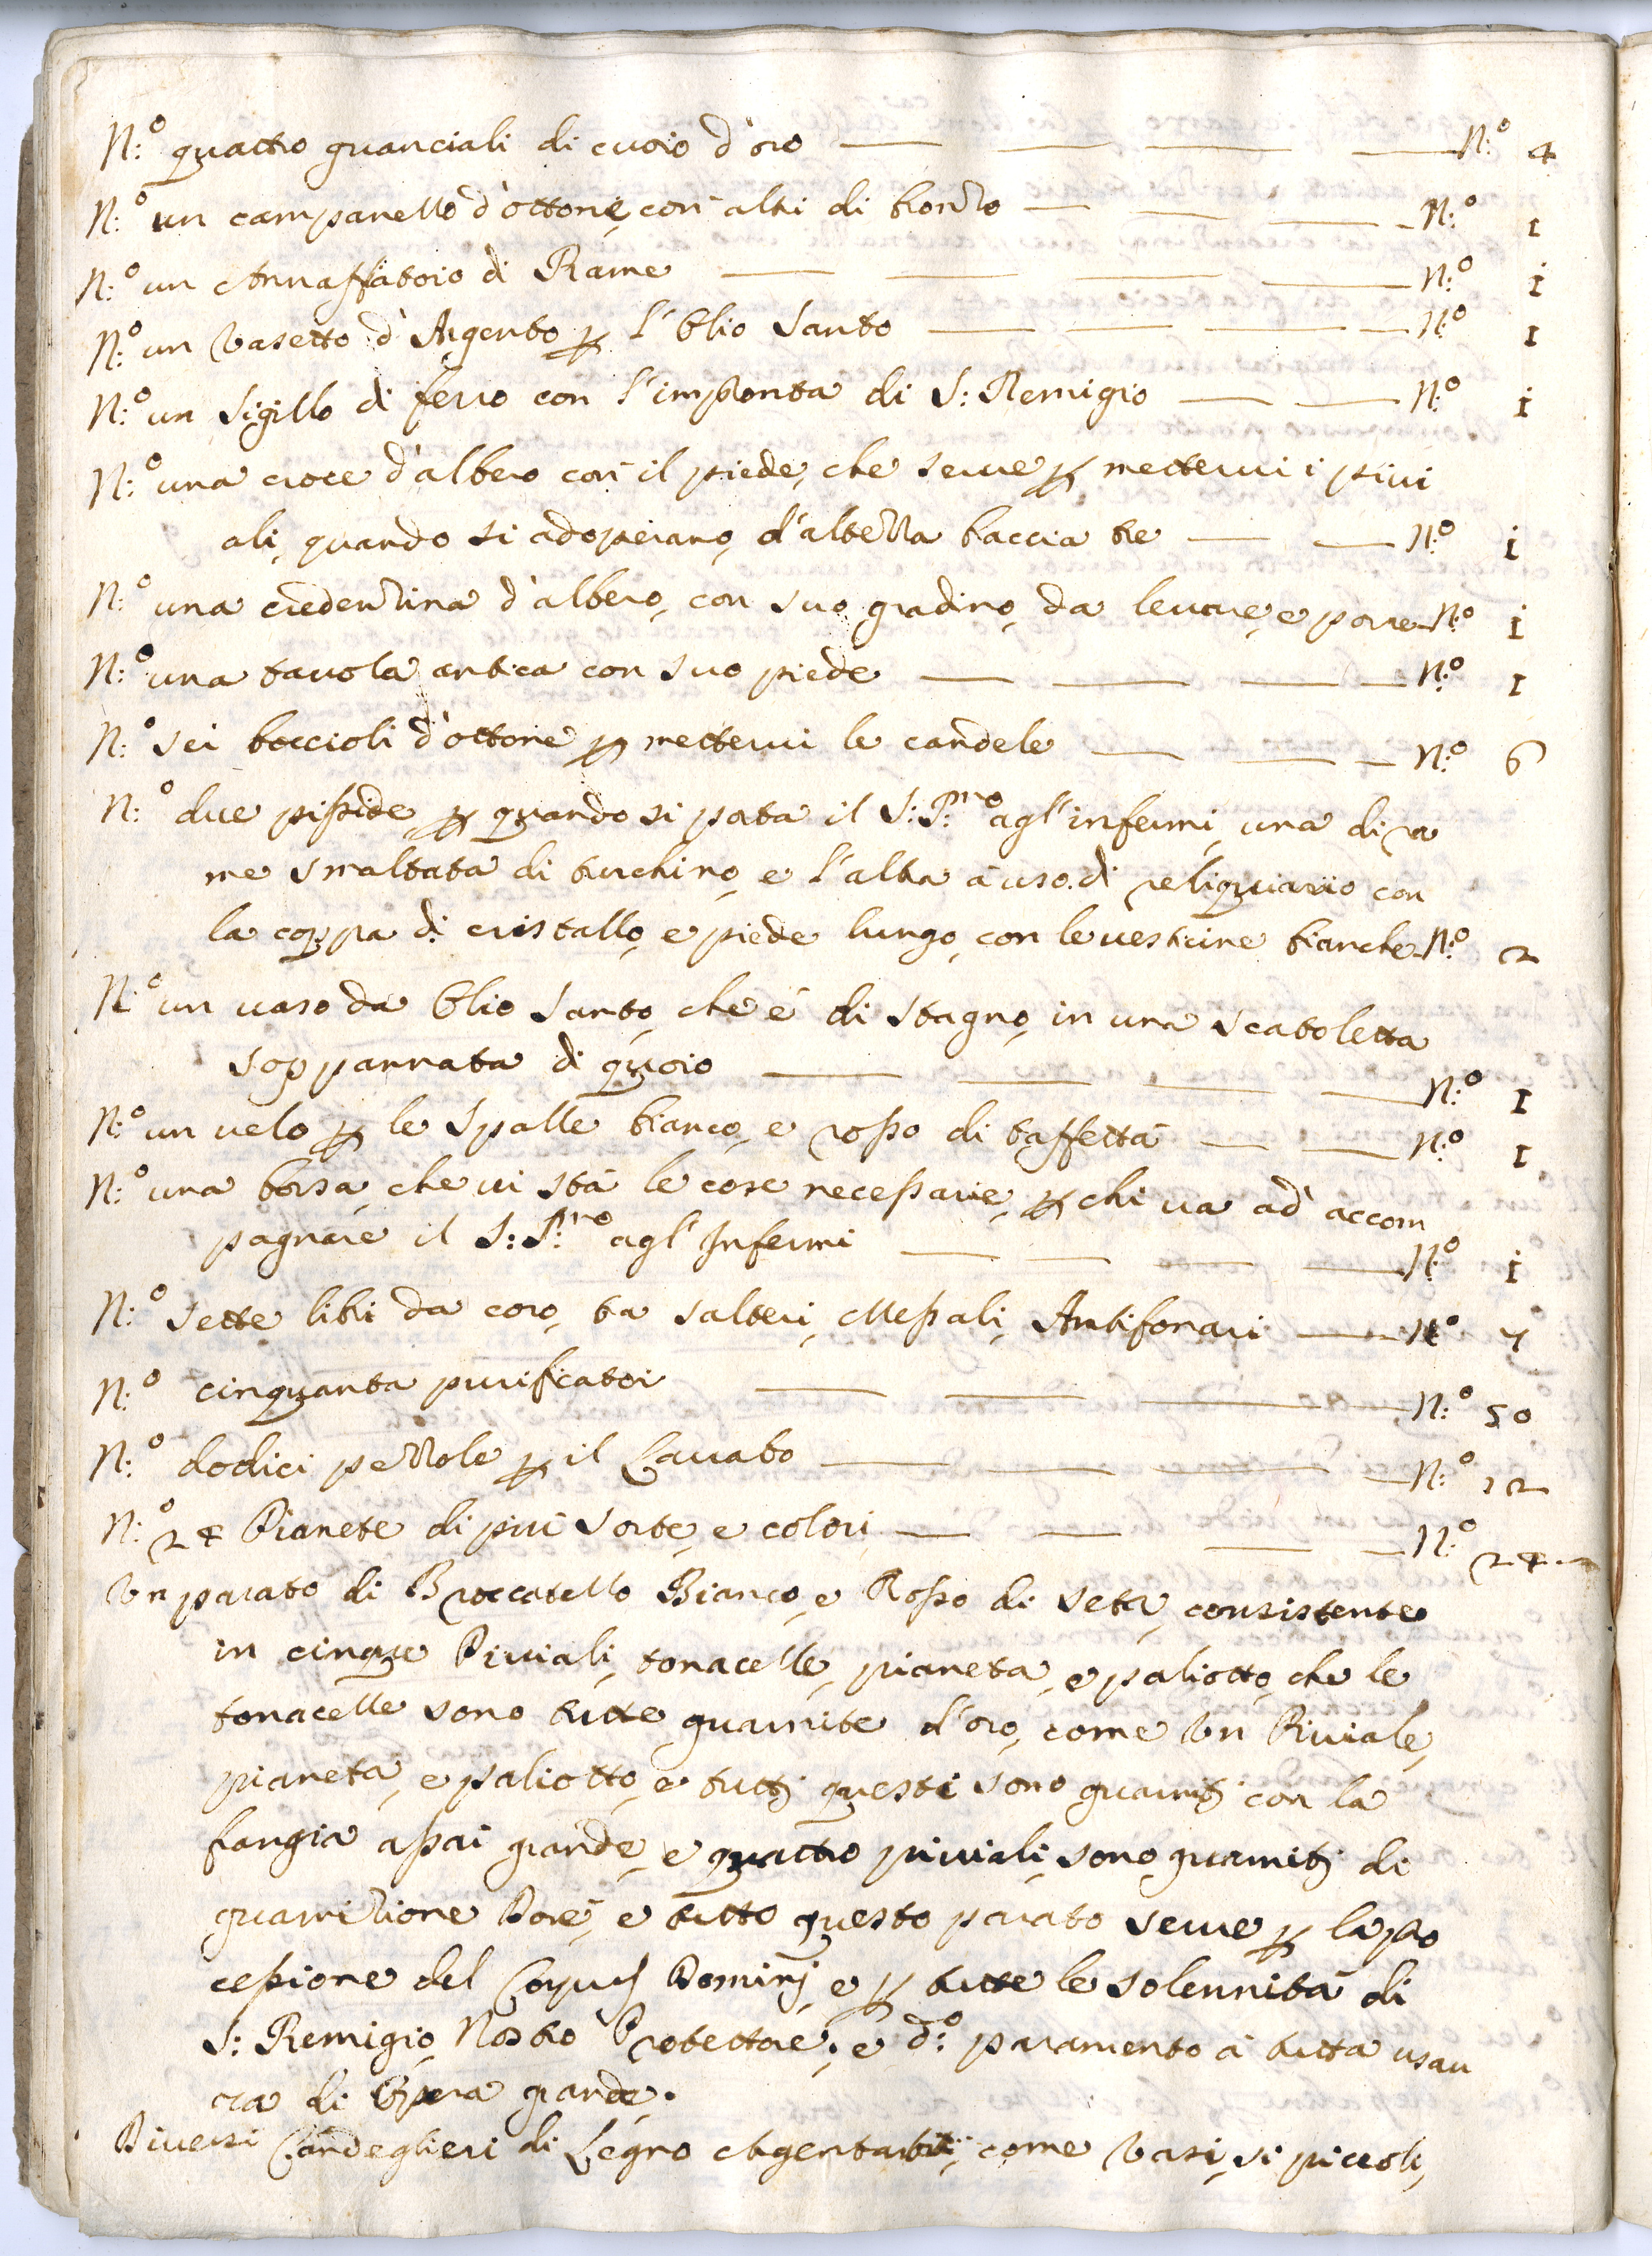 N:º quattro guanciali di cuoio d'oro — — — — N:º 4
N:º un campanello d'ottone, con altri di bronzo — — — N:º 1
N:º un Annaffiatoio di Rame — — — — N:º 1
N:º un Vasetto d'Argento p l'Olio Santo — — — — N:º 1
N:º un Sigillo di ferro con l'impronta di S: Remigio — — N:º 1
N:º una croce d'albero con il piede, che serve p mettervi i pivi
ali, quando si adoperano, d'altezza braccia tre — — N:º 1
N:º una credenzina d'albero, con suo gradino, da levare, e porre N:º 1
N:º una tavola antica con suo piede — — — — N:º 1
N:º sei boccioli d'ottone p mettervi le candele — — — N:º 6
N:º due pisside, p quando si porta il S: S:mo agl'infermi, una di ra
me smaltata di turchino, e l'altra à uso di reliquiario con
la coppa di cristallo, e piede lungo, con le vesticine bianche N:º 2
N:º un vaso da Olio Santo, che è di stagno, in una scatoletta
soppannata di quoio — — — — N:º 1
N:º un velo p le Spalle bianco, e rosso di taffettà — — N:º 1
N:º una borsa, che vi stà le cose necessarie, p chi va ad accom
pagnare il S: S:mo agl'Infermi — — — — N:º 1
N:º Sette libri da coro, tra salteri, Messali, Antifonari — N:º 7
N:º cinquanta purificatoi — — — N:º 50
N:º dodici pezzole p il Lavabo — — — — N:º 12
N:º 24 Pianete di più sorte, e colori — — — — N:º 24
Un parato di Broccatello Bianco, e Rosso di seta, consistente
in cinque Piviali, tonacelle, pianeta, e paliotto, che le
tonacelle sono tutte guarnite d'oro, come Un Piviale,
pianeta, e paliotto, e tuttj questi sono guarnitj con la
frangia assai grande, e quattro piviali, sono guarnitj di
guarnizione Dorè, e tutto questo parato serve p la pro
cessione del Corpus Dominj e p tutte le solennità di
S: Remigio, Nostro Protettore; e d:º paramento à tutta usan
za di Opera grande.
Diversi Candeglieri di Legno Argentati, come Vasi, si piccoli,